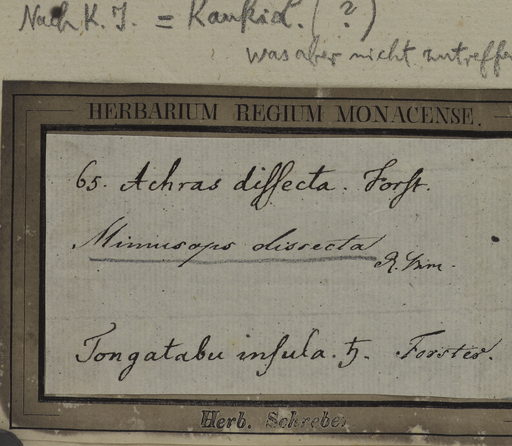 Nach K. I. = Kaukid. (?)
was aber nicht zutreffen
HERBARIUM REGIUM MONACENSE.
65. Achras dissecta. Forst.
Mimusops dissecta
R. Br.
Tongatabu insula. ♄. Forster.
Herb. Schreber